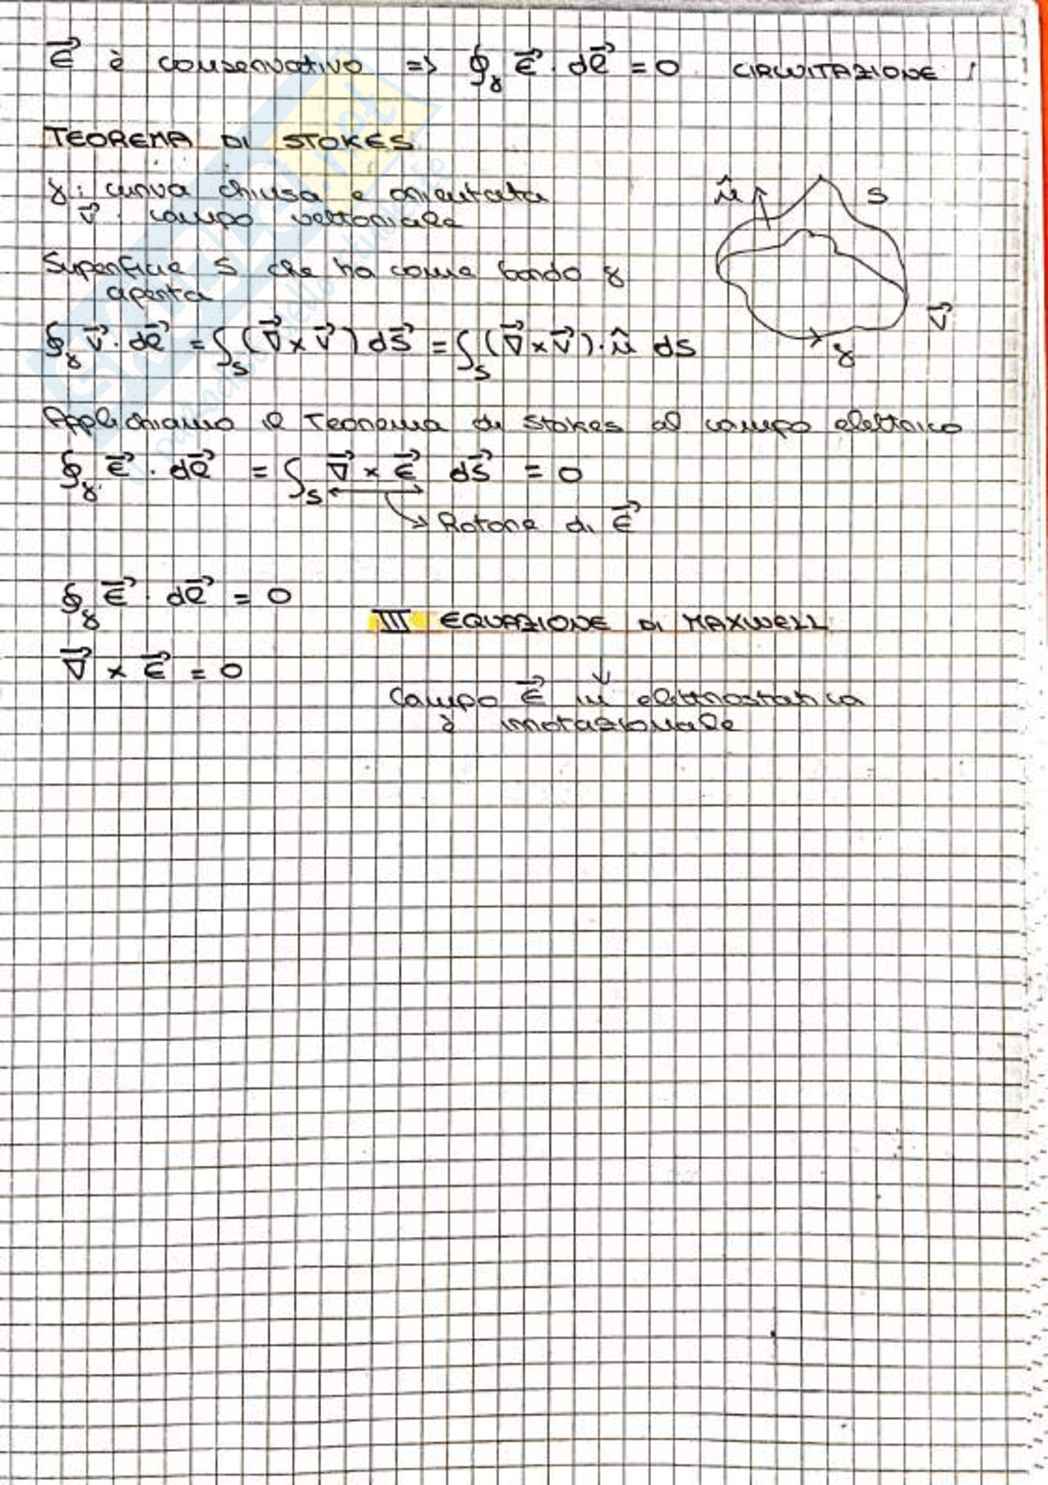 E⃗ è conservativo => ∮γ E⃗ · dl⃗ = 0 CIRCUITAZIONE
TEOREMA DI STOKES
γ: curva chiusa e orientata
v⃗ : campo vettoriale
Superficie S che ha come bordo γ
aperta
û S
v⃗
γ
∮γ v⃗ · dl⃗ = ∫S (∇⃗ × v⃗) ds⃗ = ∫S (∇⃗ × v⃗) · û ds
Applichiamo il Teorema di Stokes al campo elettrico
∮γ E⃗ · dl⃗ = ∫S ∇⃗ × E⃗ ds⃗ = 0
Rotore di E⃗
∮γ E⃗ · dl⃗ = 0
III EQUAZIONE DI MAXWELL
∇⃗ × E⃗ = 0
Campo E⃗ in elettrostatica
è irrotazionale